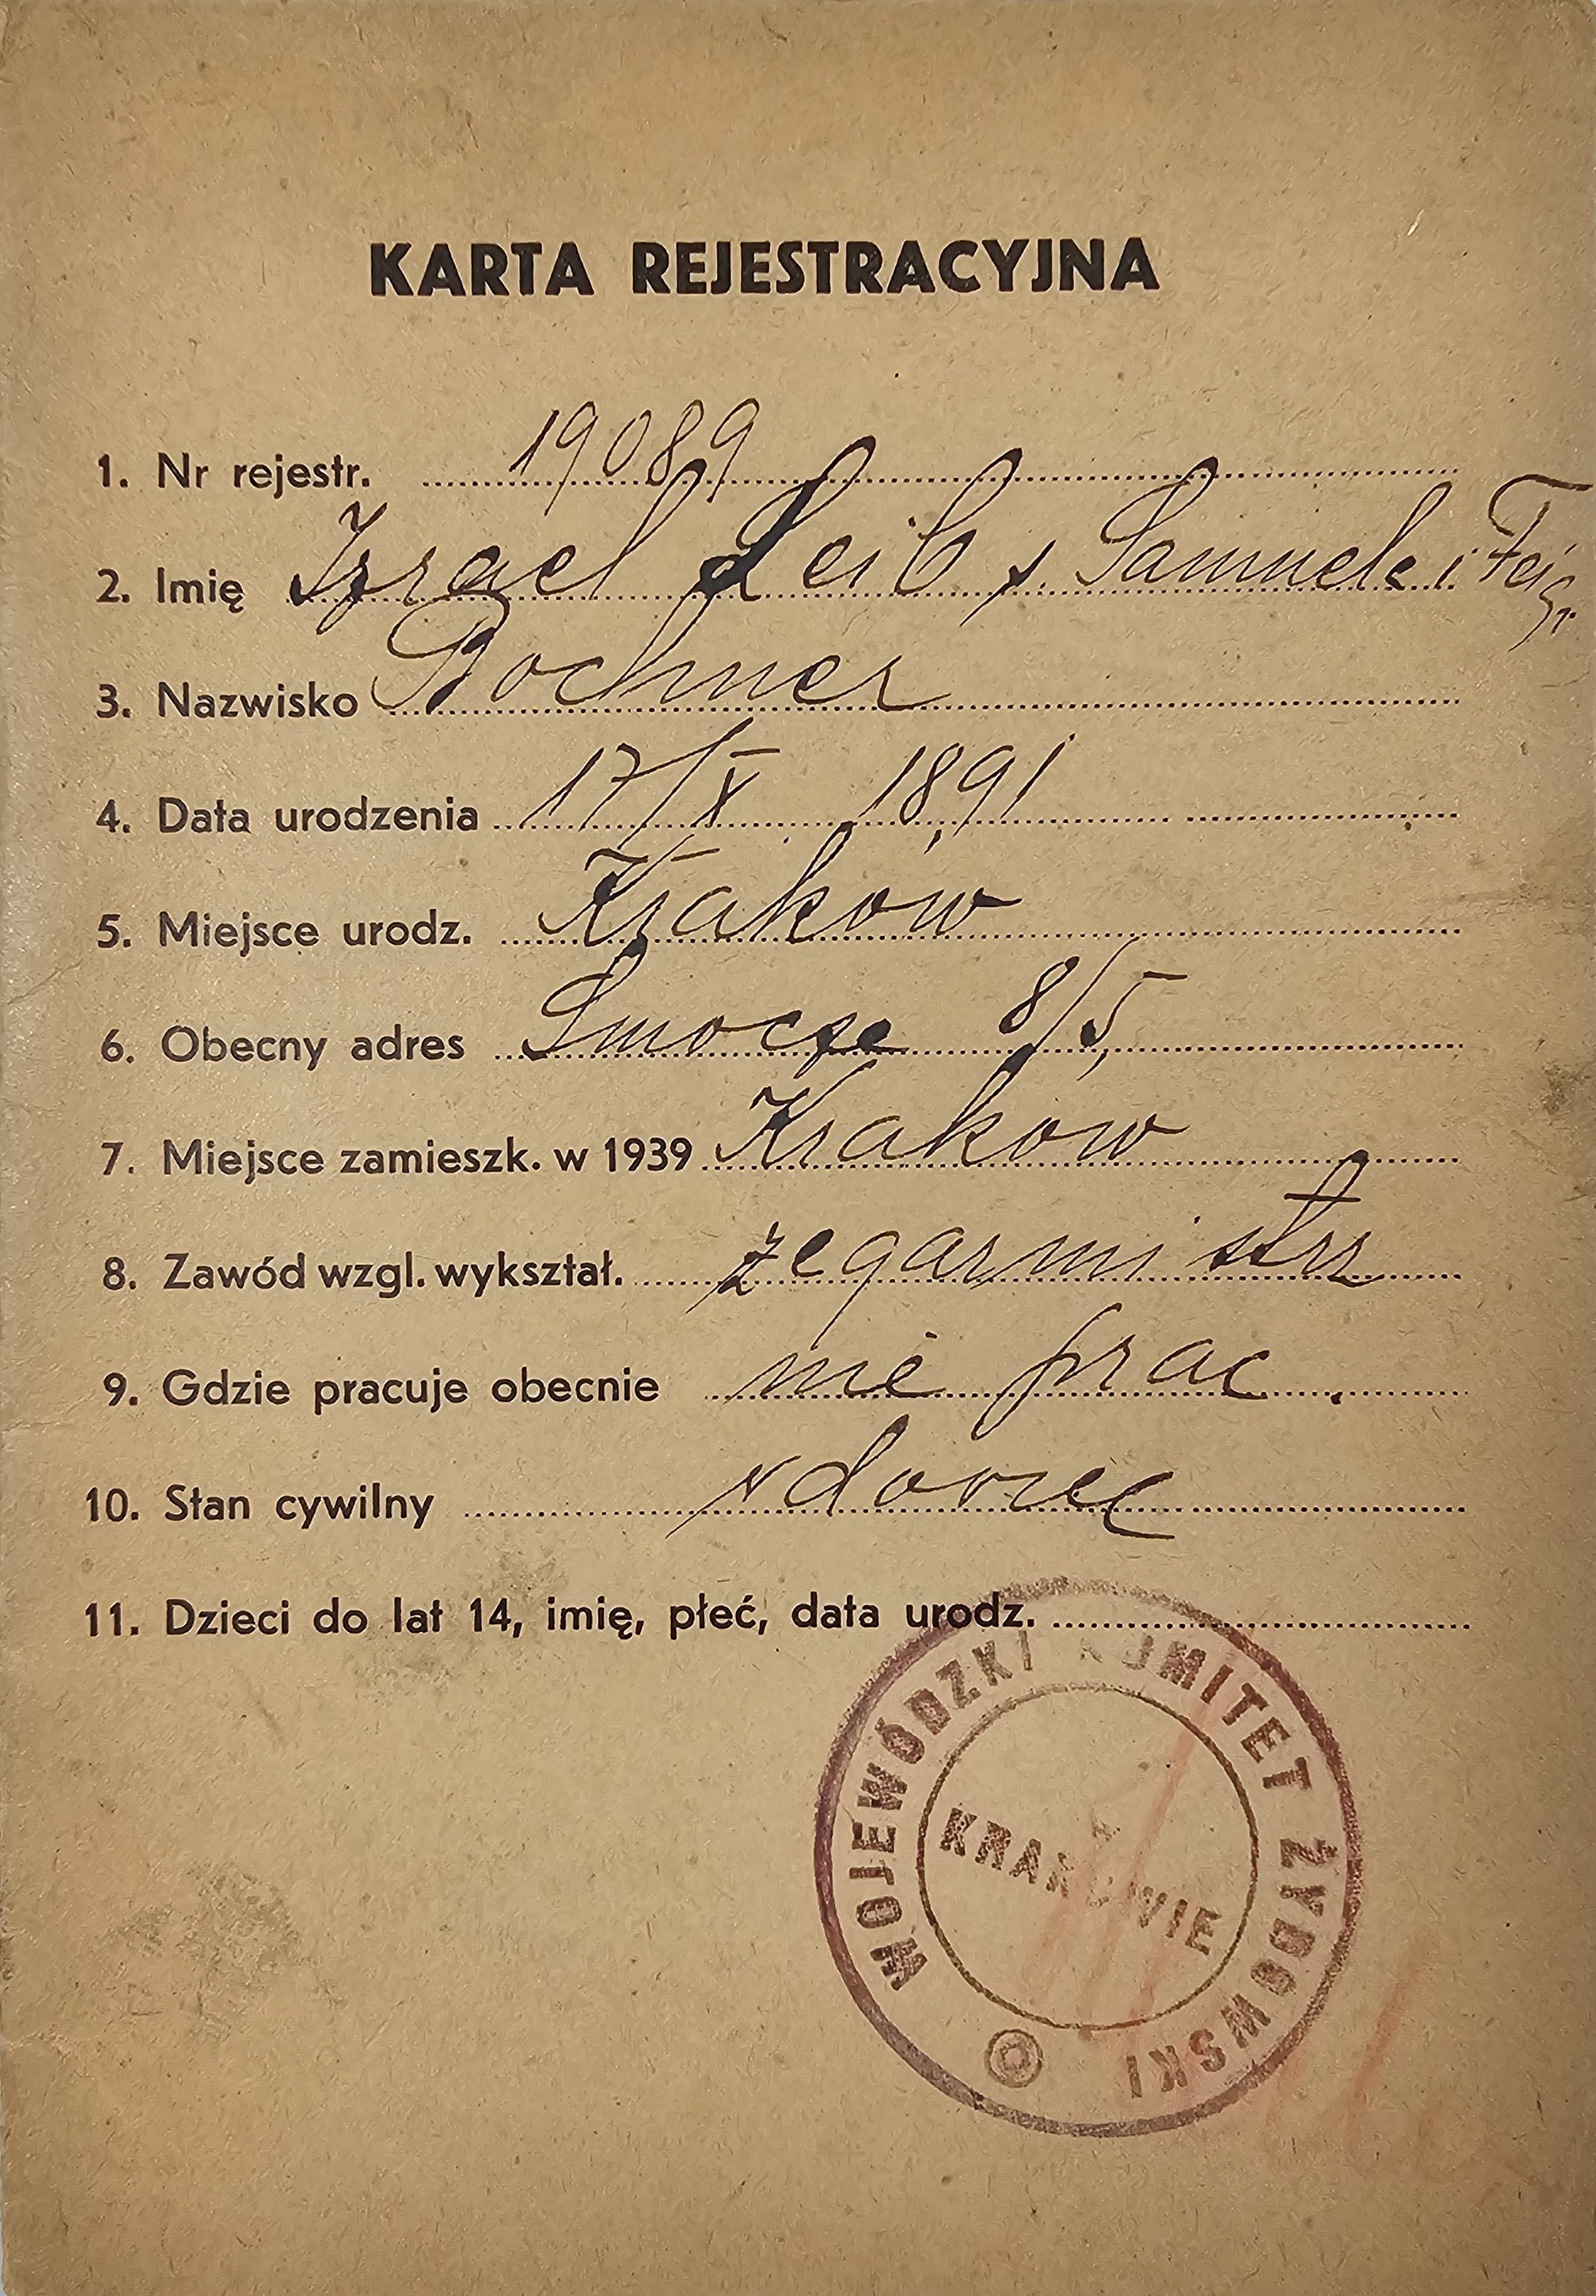 KARTA REJESTRACYJNA
1. Nr rejestr. 19089
2. Imię Izrael Leib s. Samuela i Feigi
3. Nazwisko Bochner
4. Data urodzenia 17/X 1891
5. Miejsce urodz. Kraków
6. Obecny adres Smocza 8/5,
7. Miejsce zamieszk. w 1939 Kraków
8. Zawód wzgl. wykształ. zegarmistrz
9. Gdzie pracuje obecnie nie prac.
10. Stan cywilny wdowiec
11. Dzieci do lat 14, imię, płeć, data urodz.
WOJEWÓDZKI KOMITET ŻYDOWSKI
KRAKOWIE